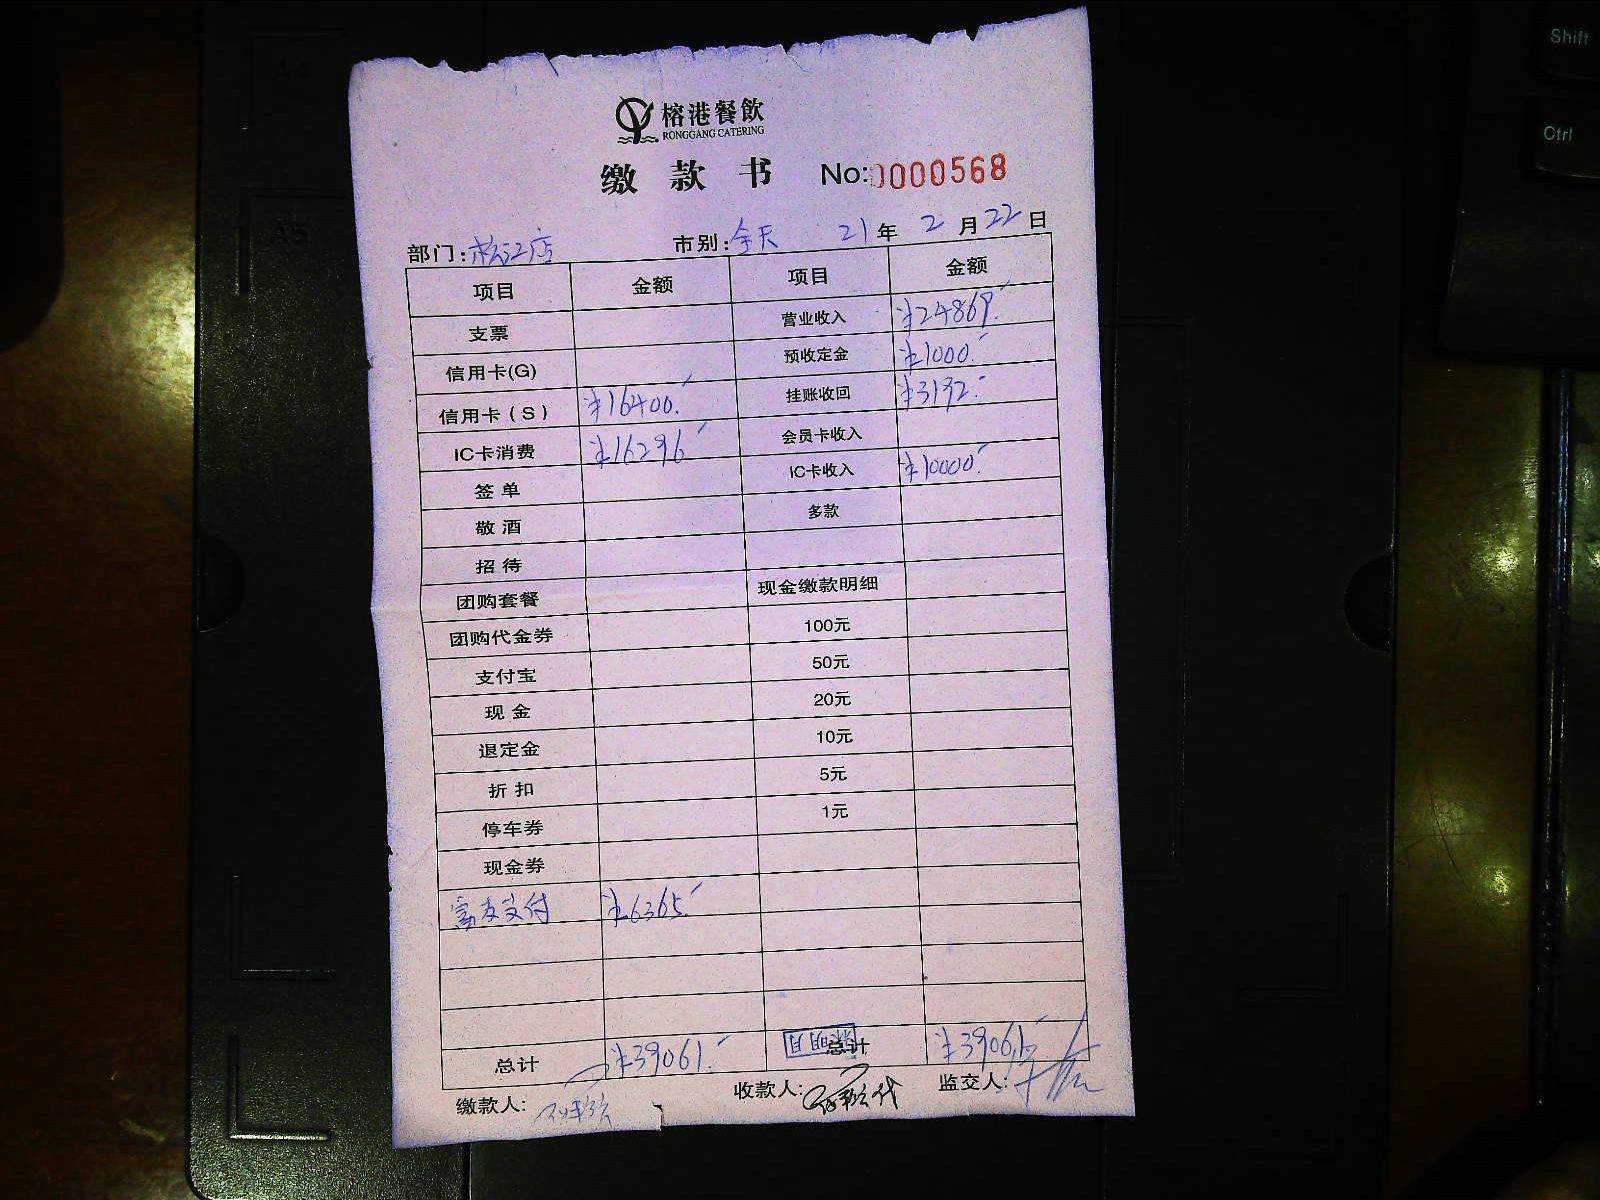 榕港餐飲
RONGGANG CATERING
缴款书 No:0000568
部门:松江店 市别:全天 21年 2月22日
项目 金额 项目 金额
支票 营业收入 ¥24869.-
信用卡(G) 预收定金 ¥1000.-
信用卡(S) ¥16400.- 挂账收回 ¥3192.-
IC卡消费 ¥16296.- 会员卡收入
签单 IC卡收入 ¥10000.-
敬酒 多款
招待
团购套餐 现金缴款明细
团购代金券 100元
支付宝 50元
现金 20元
退定金 10元
折扣 5元
停车券 1元
现金券
支付 ¥6365.-
总计 ¥39061.- 总计 ¥39061.-
缴款人: 收款人: 监交人:
Shift
Ctrl
A5